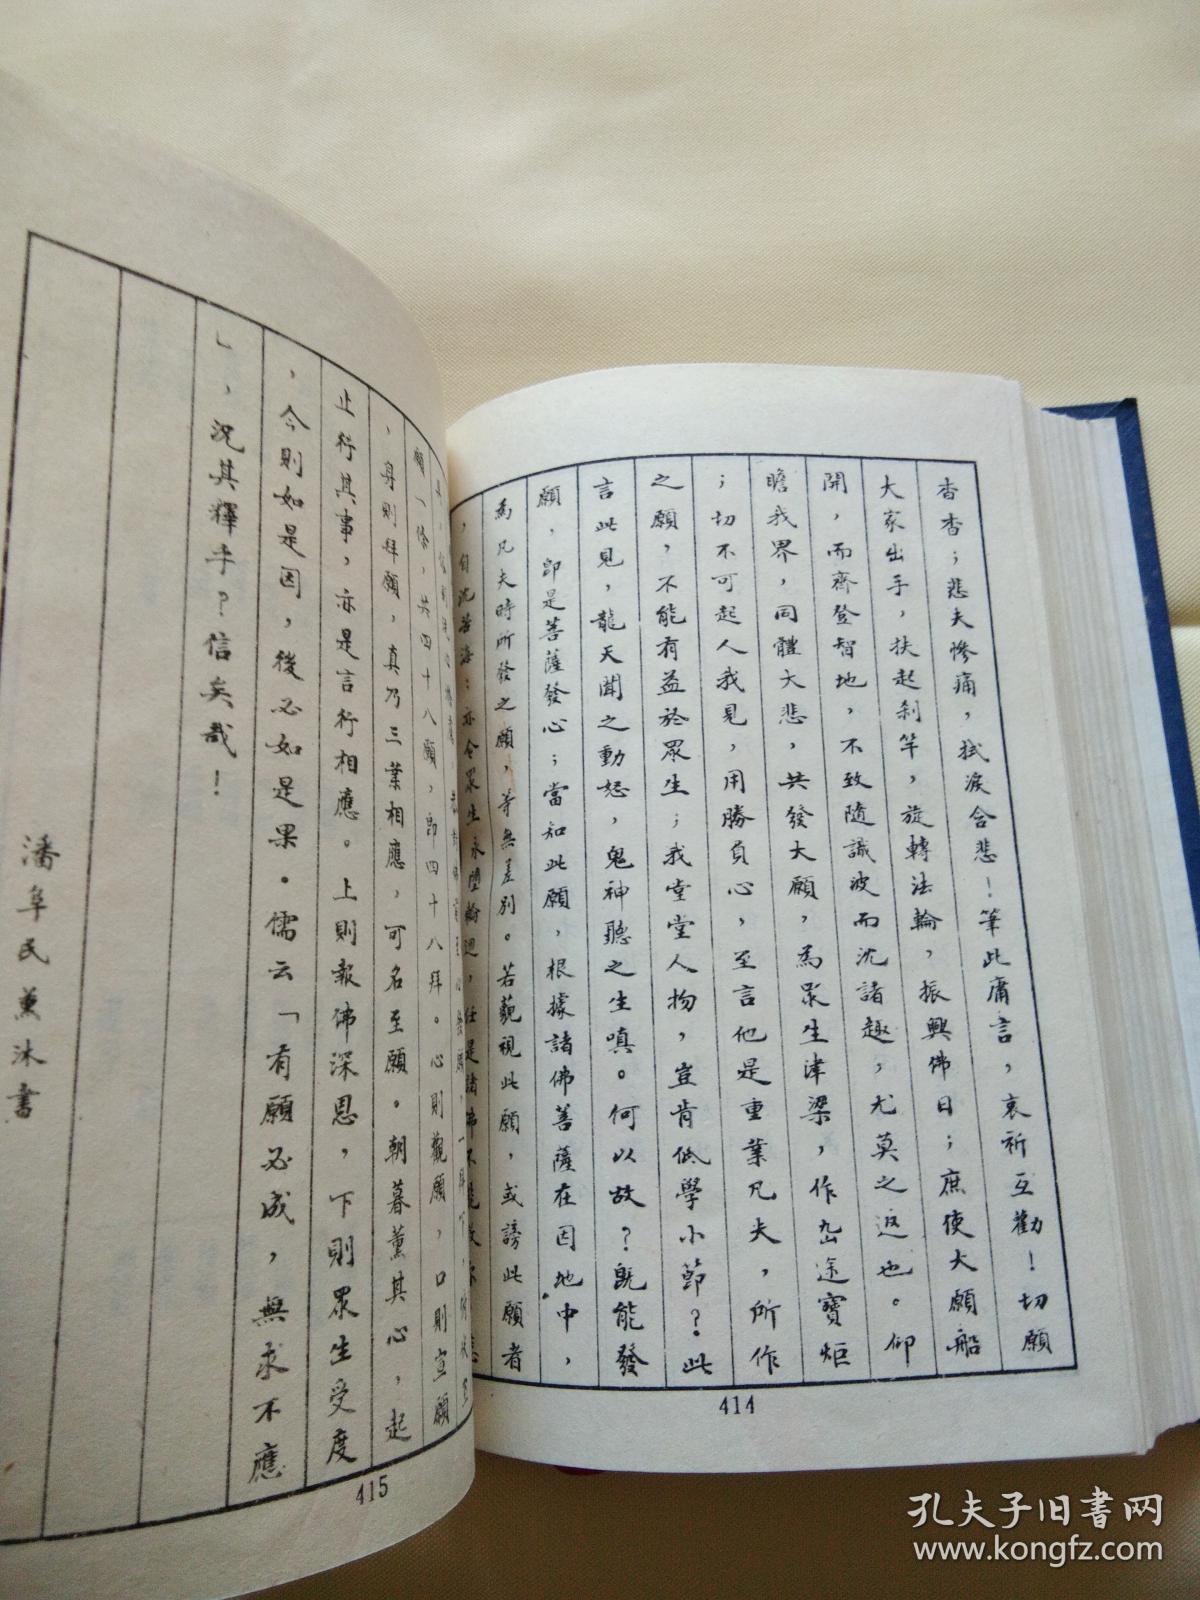 杳杳；悲夫慘痛，拭淚含悲！筆此庸言，哀祈互勸！切願
大家出手，扶起剎竿，旋轉法輪，振興佛日；庶使大願船
開，而齊登智地，不致隨識波而沉諸趣，尤莫之返也。仰
瞻我界，同體大悲，共發大願，為眾生津梁，作昏途寶炬
；切不可起人我見，用勝負心，至言他是重業凡夫，所作
之願，不能有益於眾生；我堂堂人物，豈肯低學小節？此
言此見，龍天聞之動怒，鬼神聽之生嗔。何以故？既能發
願，即是菩薩發心；當知此願，根據諸佛菩薩在因地中，
為凡夫時所發之願，等無差別。若藐視此願，或謗此願者
，自沉苦海；亦令眾生永墮輪迴，任是諸佛不能救
414
願一條，共四十八願，即四十八拜。心則觀願，口則宣願
，身則拜願，真乃三業相應，可名至願。朝暮薰其心，起
止行其事，亦是言行相應。上則報佛深恩，下則眾生受度
，今則如是因，後必如是果。儒云「有願必成，無求不應
」，況其釋乎？信矣哉！
潘阜民薰沐書
415
孔夫子旧書网
www.kongfz.com